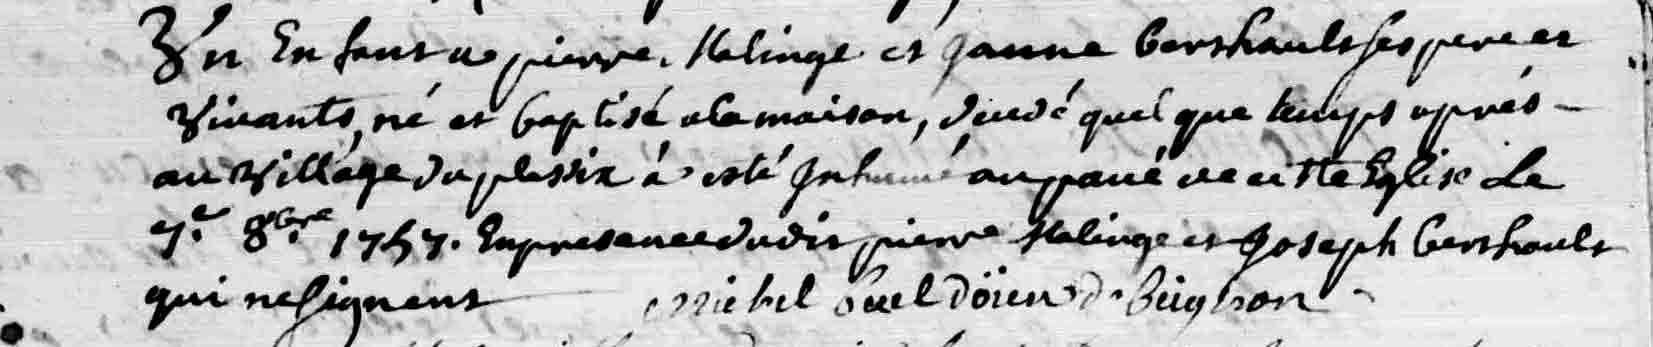 Un Enfant a pierre Halinge et Janne bershault ses pere et
Vivants, né et baptisé ala maison, decedé quelque temps aprés
au Village du plessix à esté Inhumé au pavé de cette Eglise Le
7.e 8bre 1757. En presence dudit pierre Halinge et Joseph bershault
qui ne signent Michel Doien de